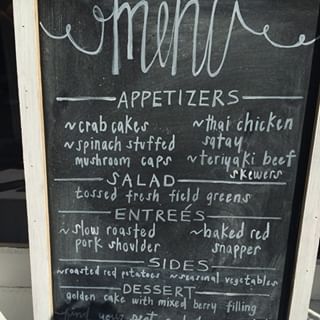 menu
APPETIZERS
~crab cakes
~spinach stuffed
mushroom caps
~thai chicken
satay
~teriyaki beef
skewers
SALAD
tossed fresh field greens
ENTREÉS
~slow roasted
pork shoulder
~baked red
snapper
SIDES
~roasted red potatoes ~seasonal vegetables
DESSERT
golden cake with mixed berry filling
find your seat